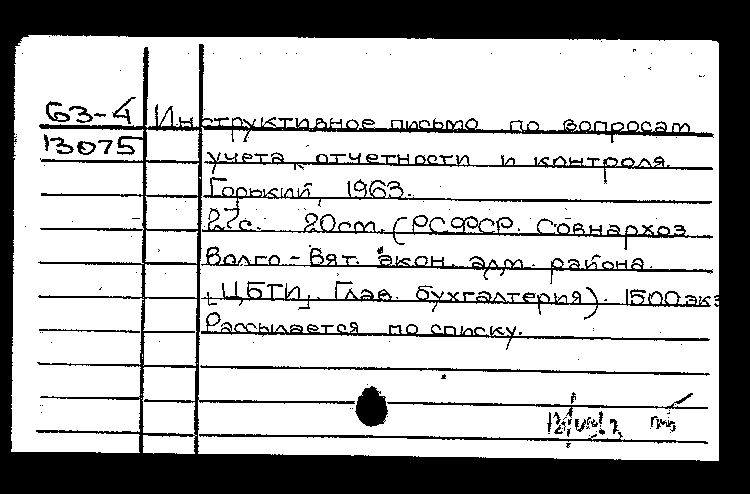 63-4 Инструктивное письмо по вопросам
13075 учета, отчетности и контроля.
Горький, 1963.
22с. 20см. (РСФСР. Совнархоз
Волго-Вят. экон. адм. района.
[ЦБТИ]. Глав. бухгалтерия). 1500 экз
Рассылается по списку.